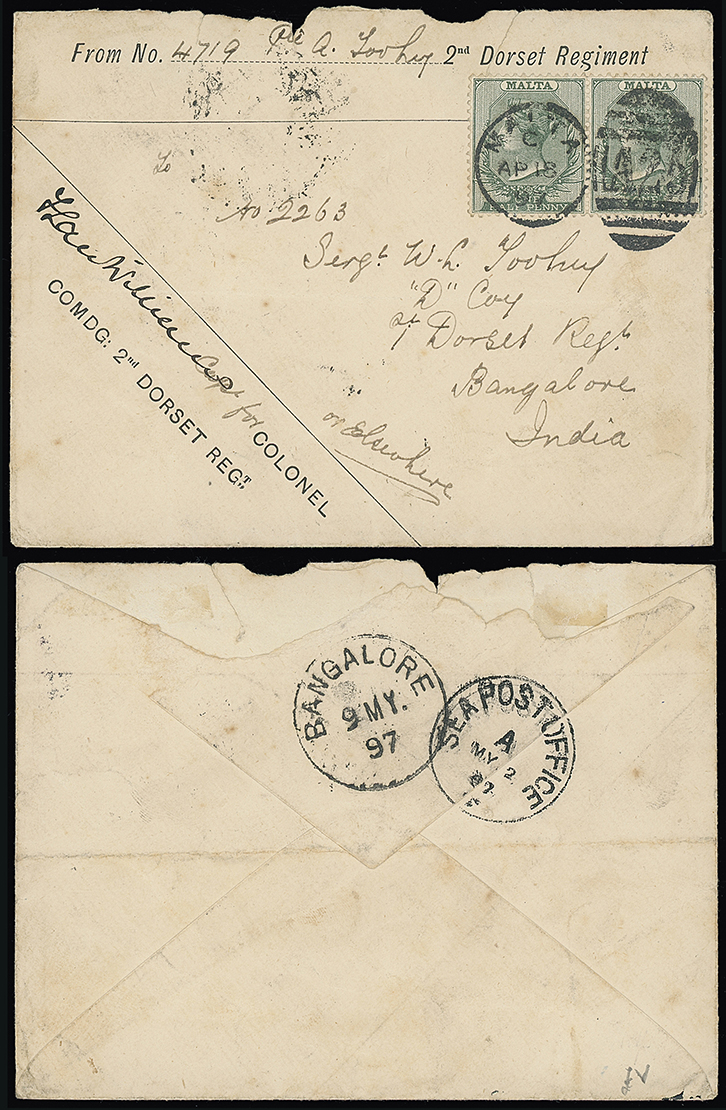 From No. 4719 Pte A. Toohey 2nd Dorset Regiment
MALTA MALTA
MALTA
C
AP 18
97
HALF PENNY
A 25
To
No 2263
Sergt W. L. Toohey
"D" Coy
Dorset Regt
Bangalore
India
or Elsewhere
Capt for COLONEL
COMDG: 2nd DORSET REGT
BANGALORE
9 MY.
97
SEA POST OFFICE
A
MY 2
97